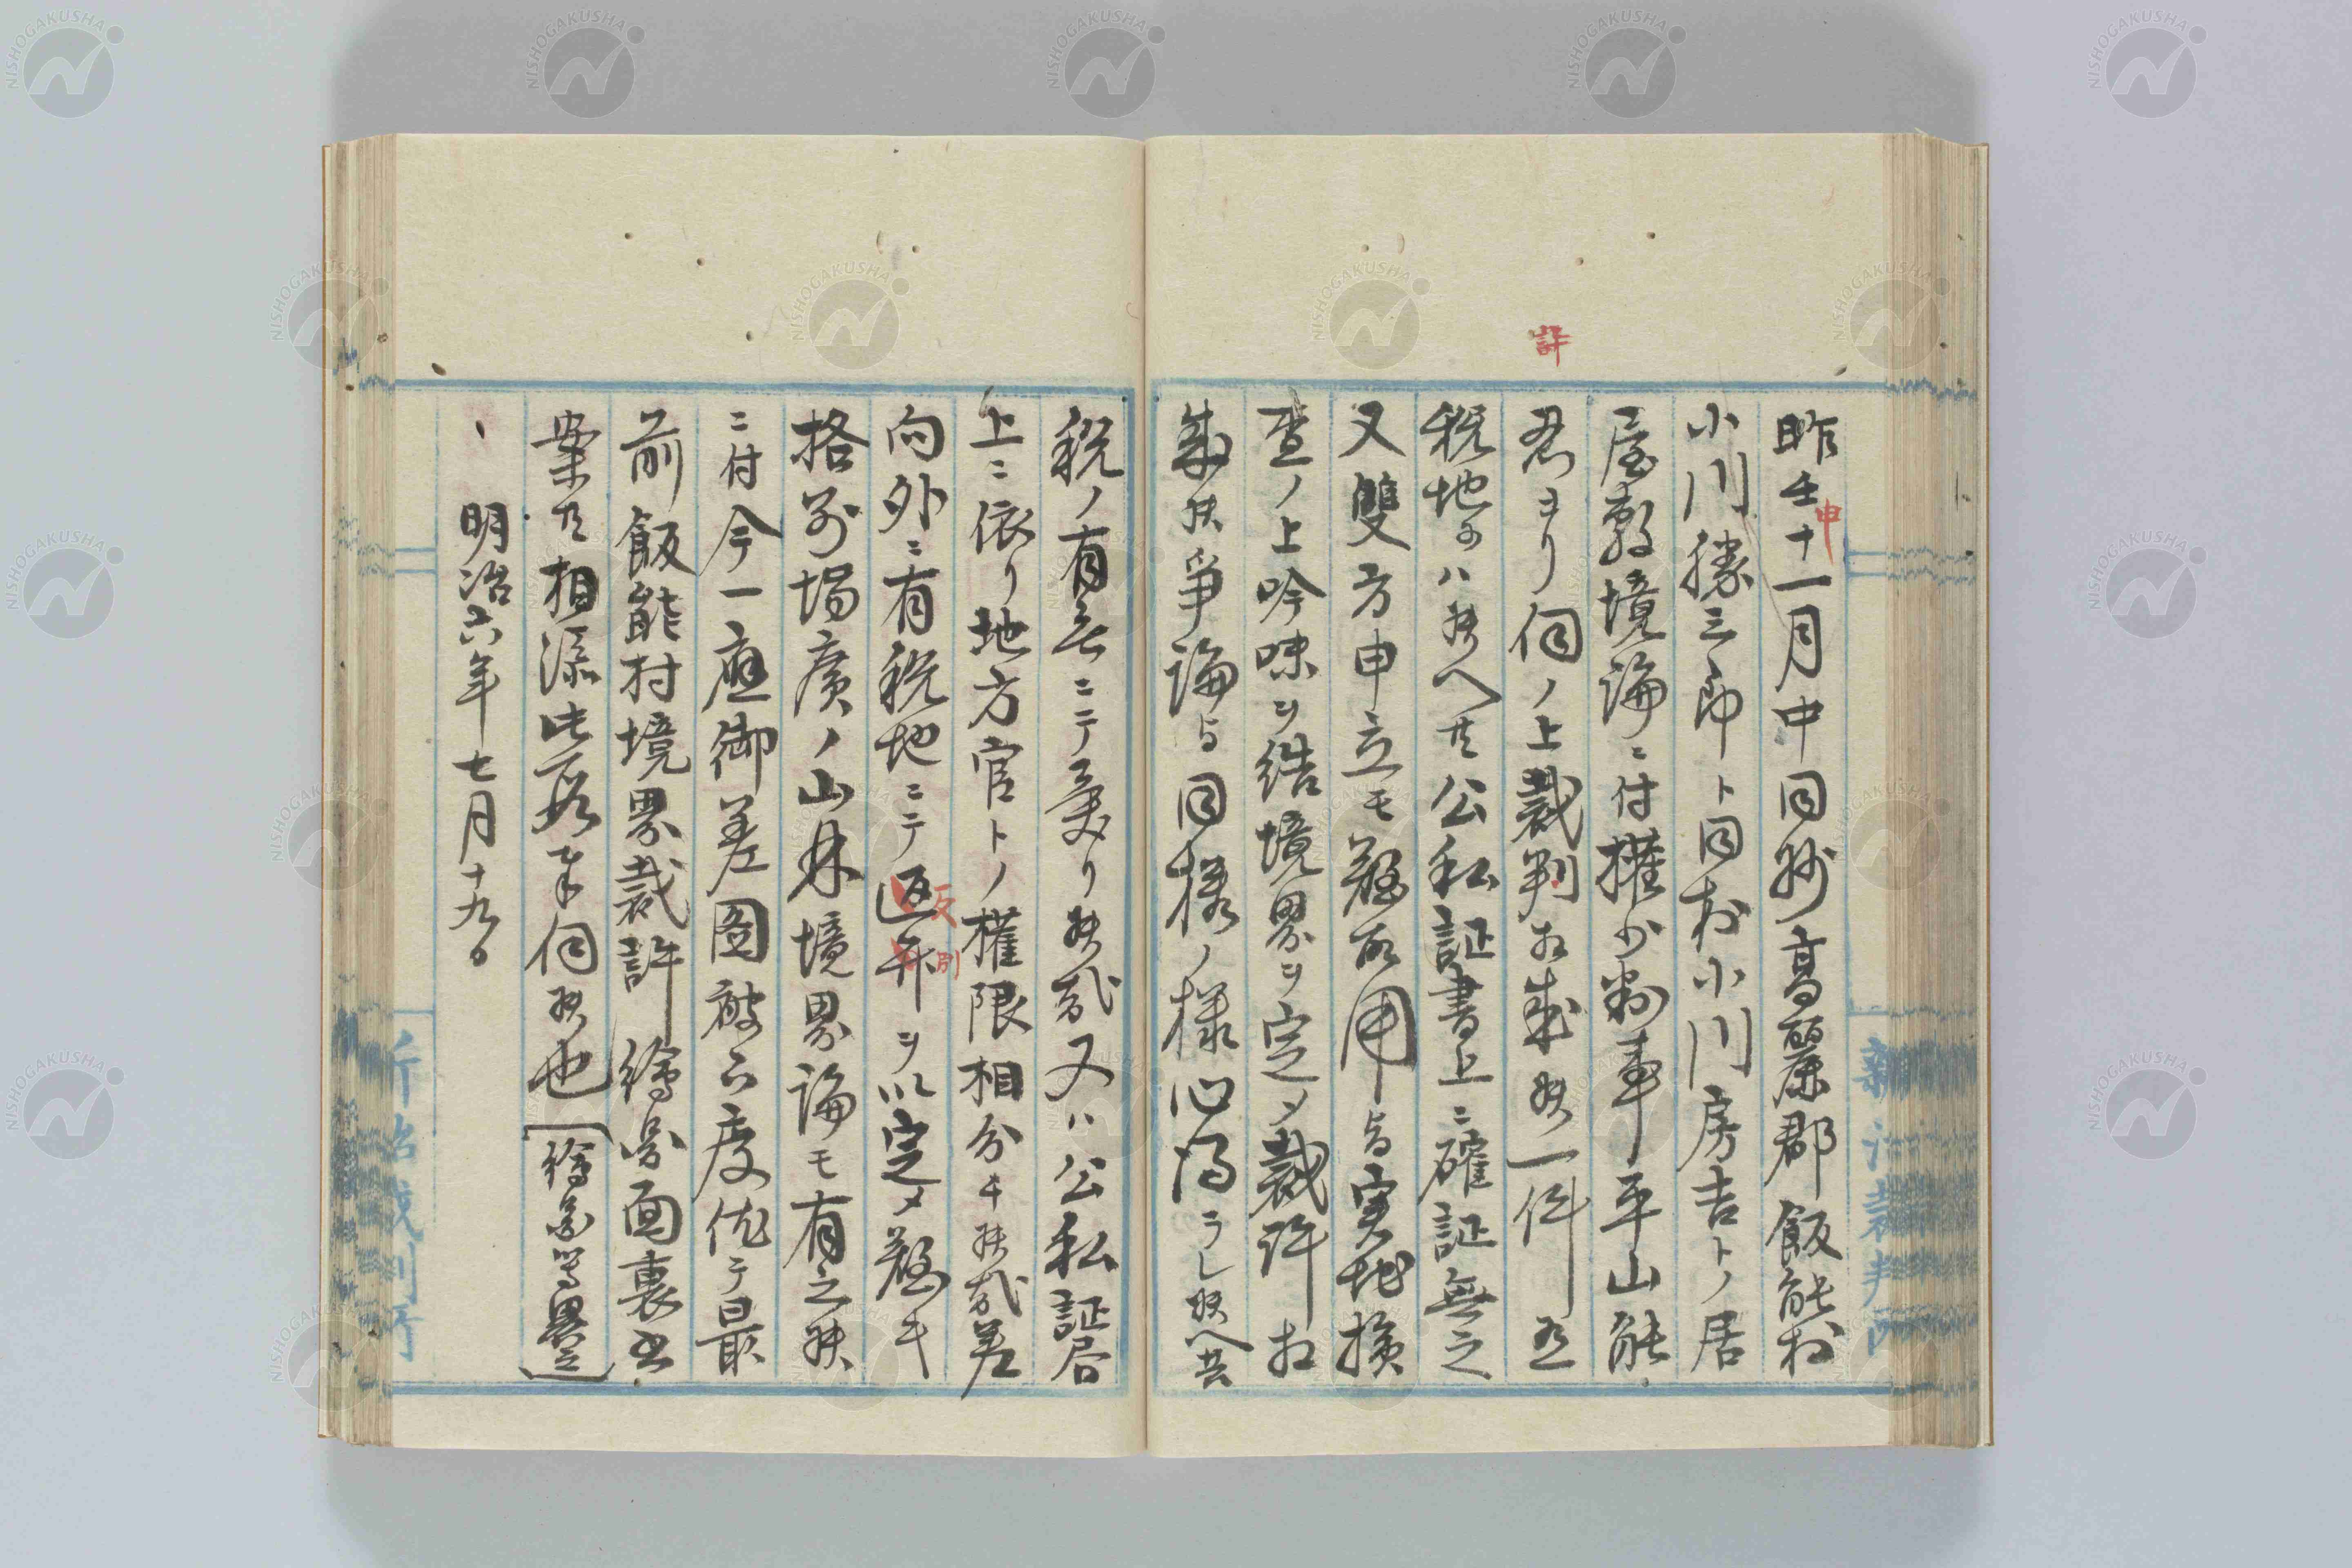 昨壬十一月中同州高麗郡飯能村
申
小川勝三郎ト同村小川房吉トノ居
屋敷境論ニ付権少判事平山能
忍ヨリ伺ノ上裁判相成候一件並
許
税地ヲハ候ヘ共公私証書上ニ確証無之
又雙方申立モ難取用旨実地検
査ノ上吟味ヲ結境界ヲ定メ裁許相
成候争論与同様ノ様心得ラレ候ヘ共
税ノ有無ニテ異リ候哉又ハ公私証書
上ニ依リ地方官トノ權限相分チ候哉差
向外ニ有税地ニテ返弁ヲ以定メ難キ
反
別
格別場広ノ山林境界論モ有之候
ニ付今一應御差図被下度依テ最
前飯能村境界裁許繪図面裏書
案共相添此段奉伺候也
繪図等畧之
明治六年七月十九日
新治裁判所